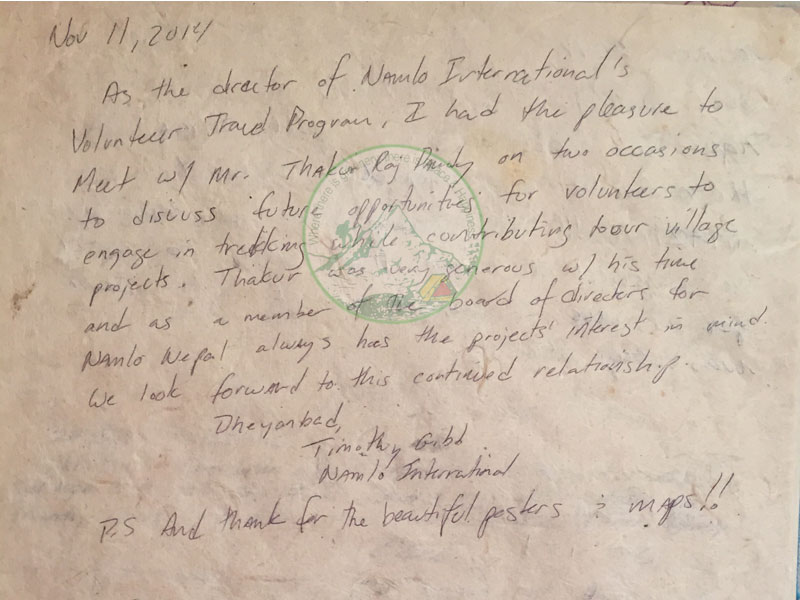 Nov 11, 2014
As the director of Namlo International's
Volunteer Travel Program, I had the pleasure to
Meet w/ Mr. Thakur Raj Pandy on two occasions
to discuss future opportunities for volunteers to
engage in trekking while contributing to our village
projects. Thakur was very generous w/ his time
and as a member of the board of directors for
Namlo Nepal always has the projects' interest in mind.
We look forward to this continued relationship.
Dheyanbad,
Timothy Gibb
Namlo International
P.S And thank for the beautiful posters & maps!!